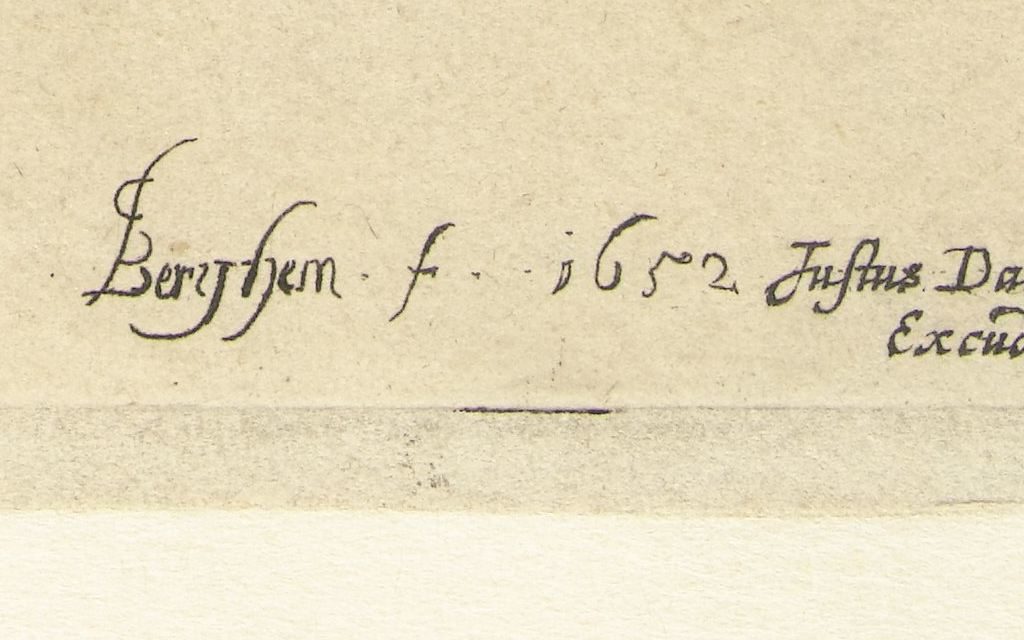 Berghem. f. 1652 Justus Da
Excud